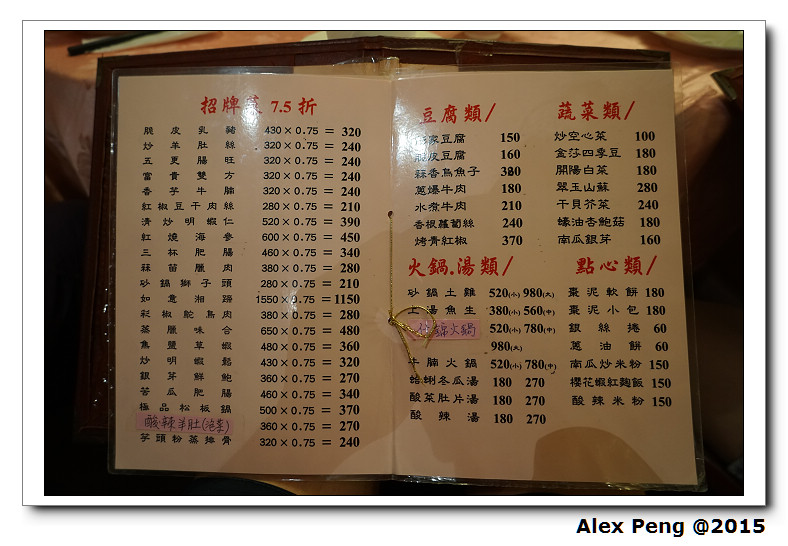 招牌菜 7.5 折
脆皮乳豬 430×0.75 = 320
炒羊肚絲 320×0.75 = 240
五更腸旺 320×0.75 = 240
富貴雙方 320×0.75 = 240
香芋牛腩 320×0.75 = 240
紅椒豆干肉絲 280×0.75 = 210
清炒明蝦仁 520×0.75 = 390
紅燒海參 600×0.75 = 450
三杯肥腸 460×0.75 = 340
蒜苗臘肉 380×0.75 = 280
砂鍋獅子頭 280×0.75 = 210
如意湘蹄 1550×0.75 = 1150
彩椒鴕鳥肉 380×0.75 = 280
蒸臘味合 650×0.75 = 480
焦鹽草蝦 480×0.75 = 360
炒明蝦鬆 430×0.75 = 320
銀芽鮮鮑 360×0.75 = 270
苦瓜肥腸 460×0.75 = 340
極品松板鍋 500×0.75 = 370
酸辣羊肚(泡菜) 360×0.75 = 270
芋頭粉蒸排骨 320×0.75 = 240
豆腐類/
家豆腐 150
脆皮豆腐 160
蒜香烏魚子 320
蔥爆牛肉 180
水煮牛肉 210
香根蘿蔔絲 240
烤青紅椒 370
火鍋.湯類/
砂鍋土雞 520(小) 980(大)
上湯魚生 380(小) 560(中)
火鍋 520(小) 780(中)
980(大)
牛腩火鍋 520(小) 780(中)
蛤蜊冬瓜湯 180 270
酸菜肚片湯 180 270
酸辣湯 180 270
蔬菜類/
炒空心菜 100
金莎四季豆 180
開陽白菜 180
翠玉山蘇 280
干貝芥菜 240
蠔油杏鮑菇 180
南瓜銀芽 160
點心類/
棗泥軟餅 180
棗泥小包 180
銀絲捲 60
蔥油餅 60
南瓜炒米粉 150
櫻花蝦紅麴飯 150
酸辣米粉 150
Alex Peng @2015